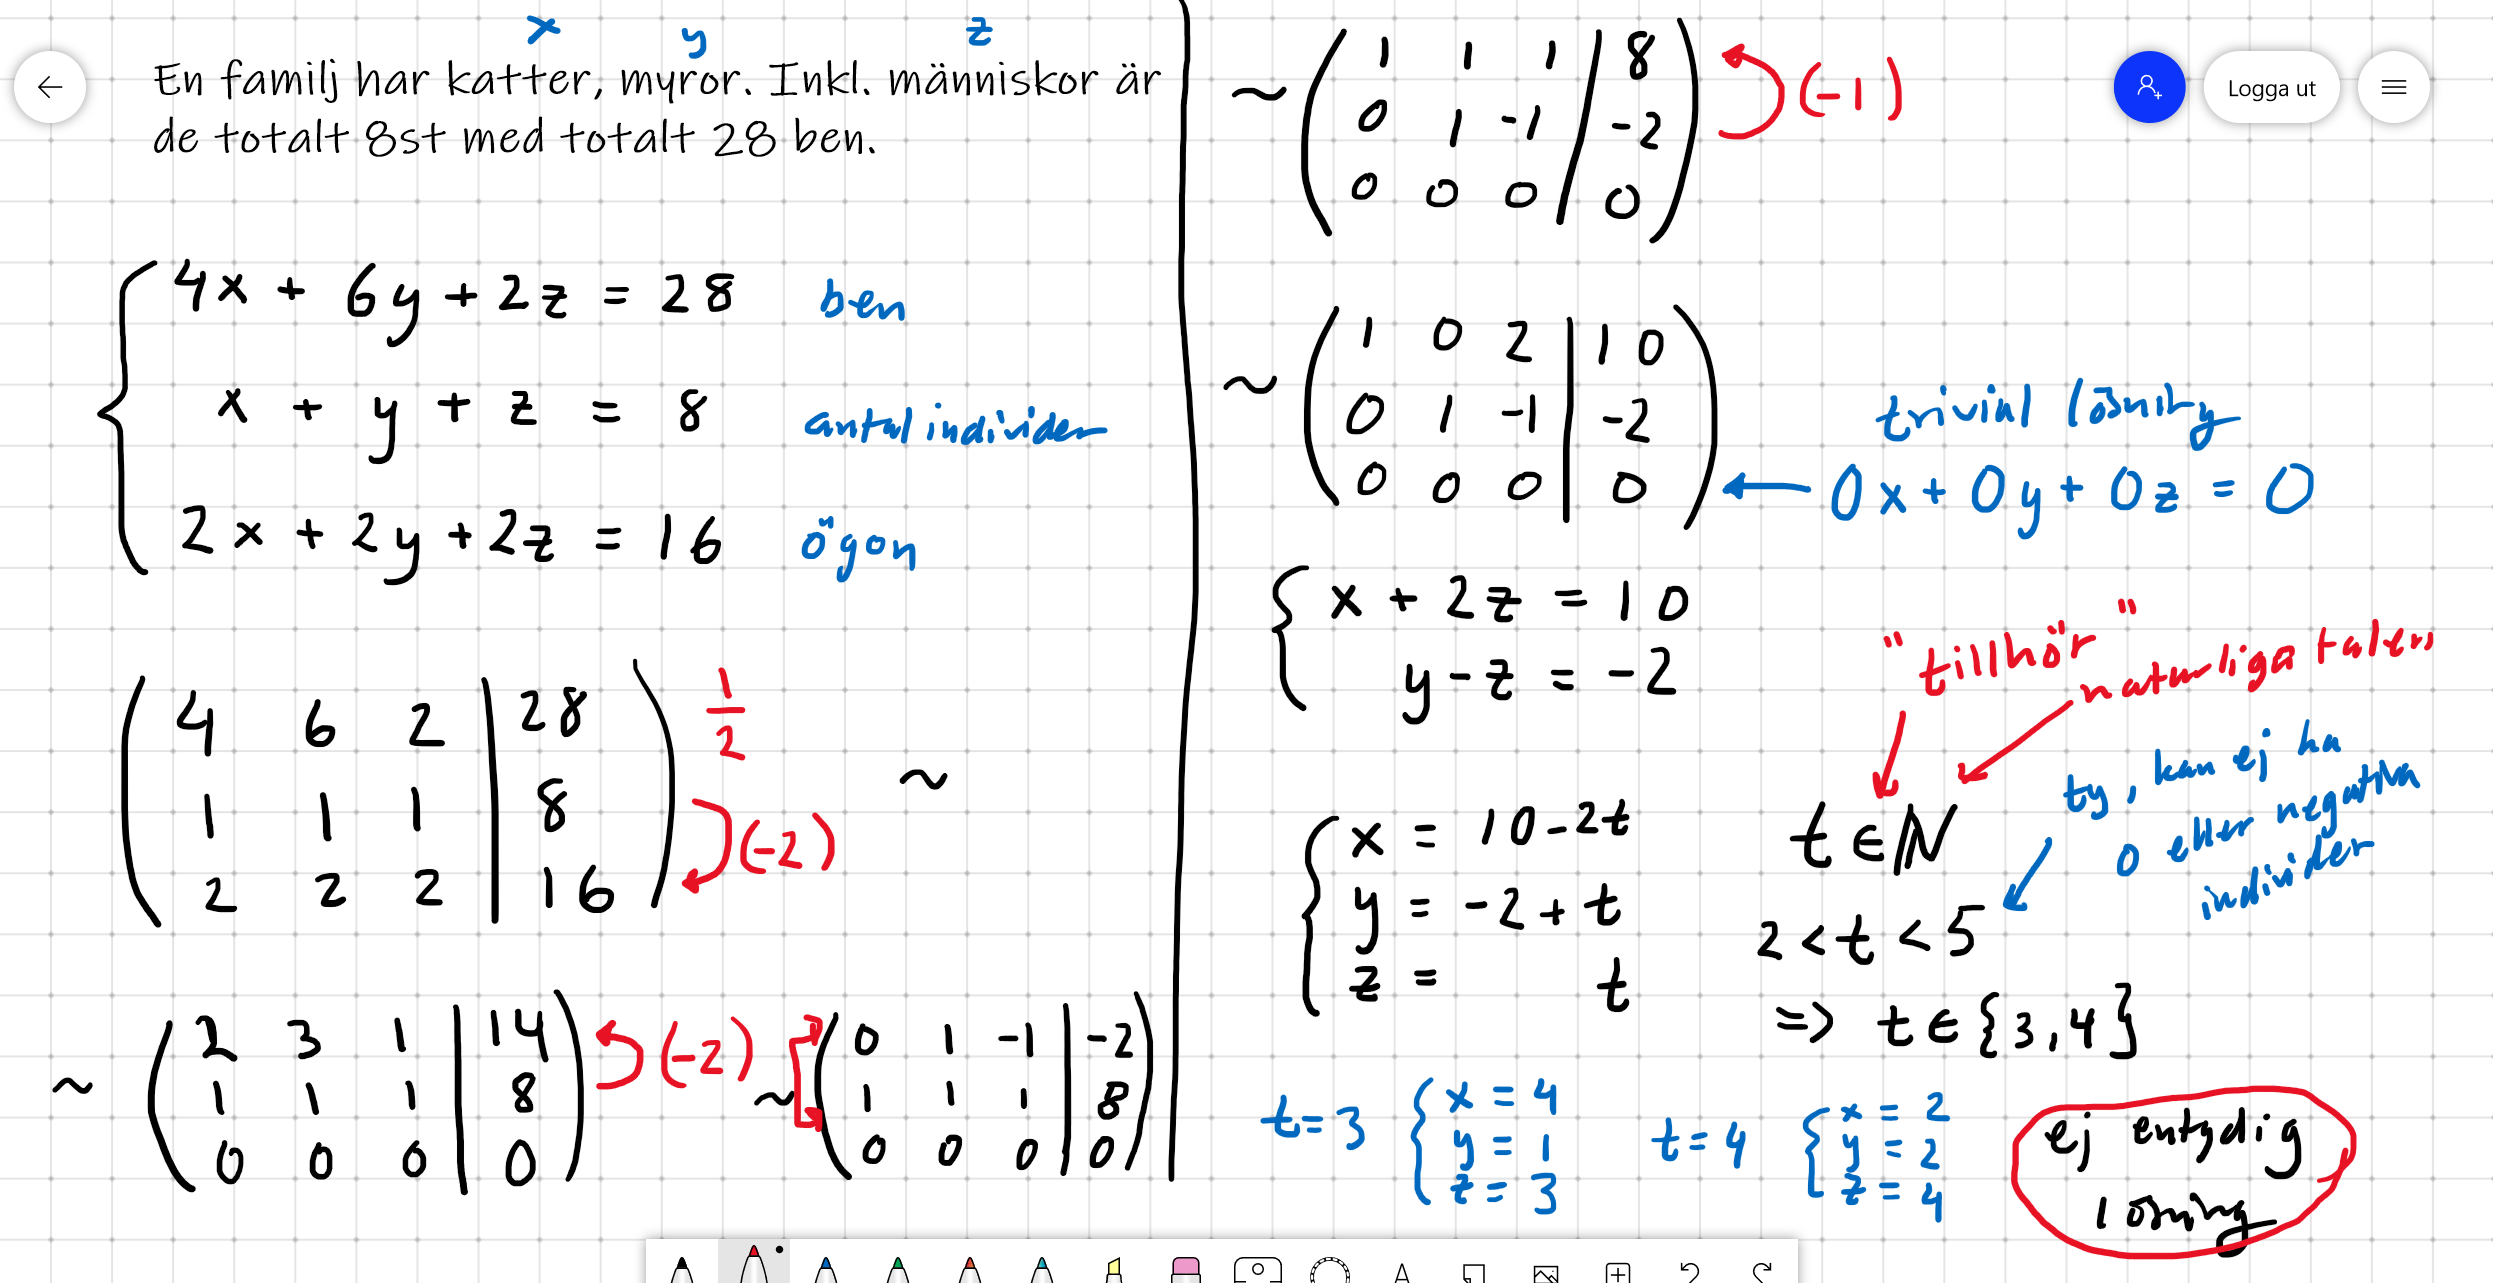 x y z
En familj har katter, myror. Inkl. människor är
de totalt 8st med totalt 28 ben.
4x + 6y + 2z = 28 ben
x + y + z = 8 antal individer
2x + 2y + 2z = 16 ögon
4 6 2 | 28 1/2
1 1 1 | 8 (-2) ~
2 2 2 | 16
2 3 1 | 14
~ 1 1 1 | 8 (-2)
0 0 0 | 0
0 1 -1 | -2
~ 1 1 1 | 8
0 0 0 | 0
1 1 1 | 8
~ 0 1 -1 | -2 (-1)
0 0 0 | 0
1 0 2 | 10
~ 0 1 -1 | -2
0 0 0 | 0
trivial lösning
0x + 0y + 0z = 0
x + 2z = 10
y - z = -2
"tillhör"
naturliga talen
x = 10 - 2t
y = -2 + t
z = t
t ∈ ℕ
ty, kan ej ha
0 eller negativa
individer
2 < t < 5
=> t ∈ {3,4}
t = 3
x = 4
y = 1
z = 3
t = 4
x = 2
y = 2
z = 4
ej entydig
lösning
Logga ut